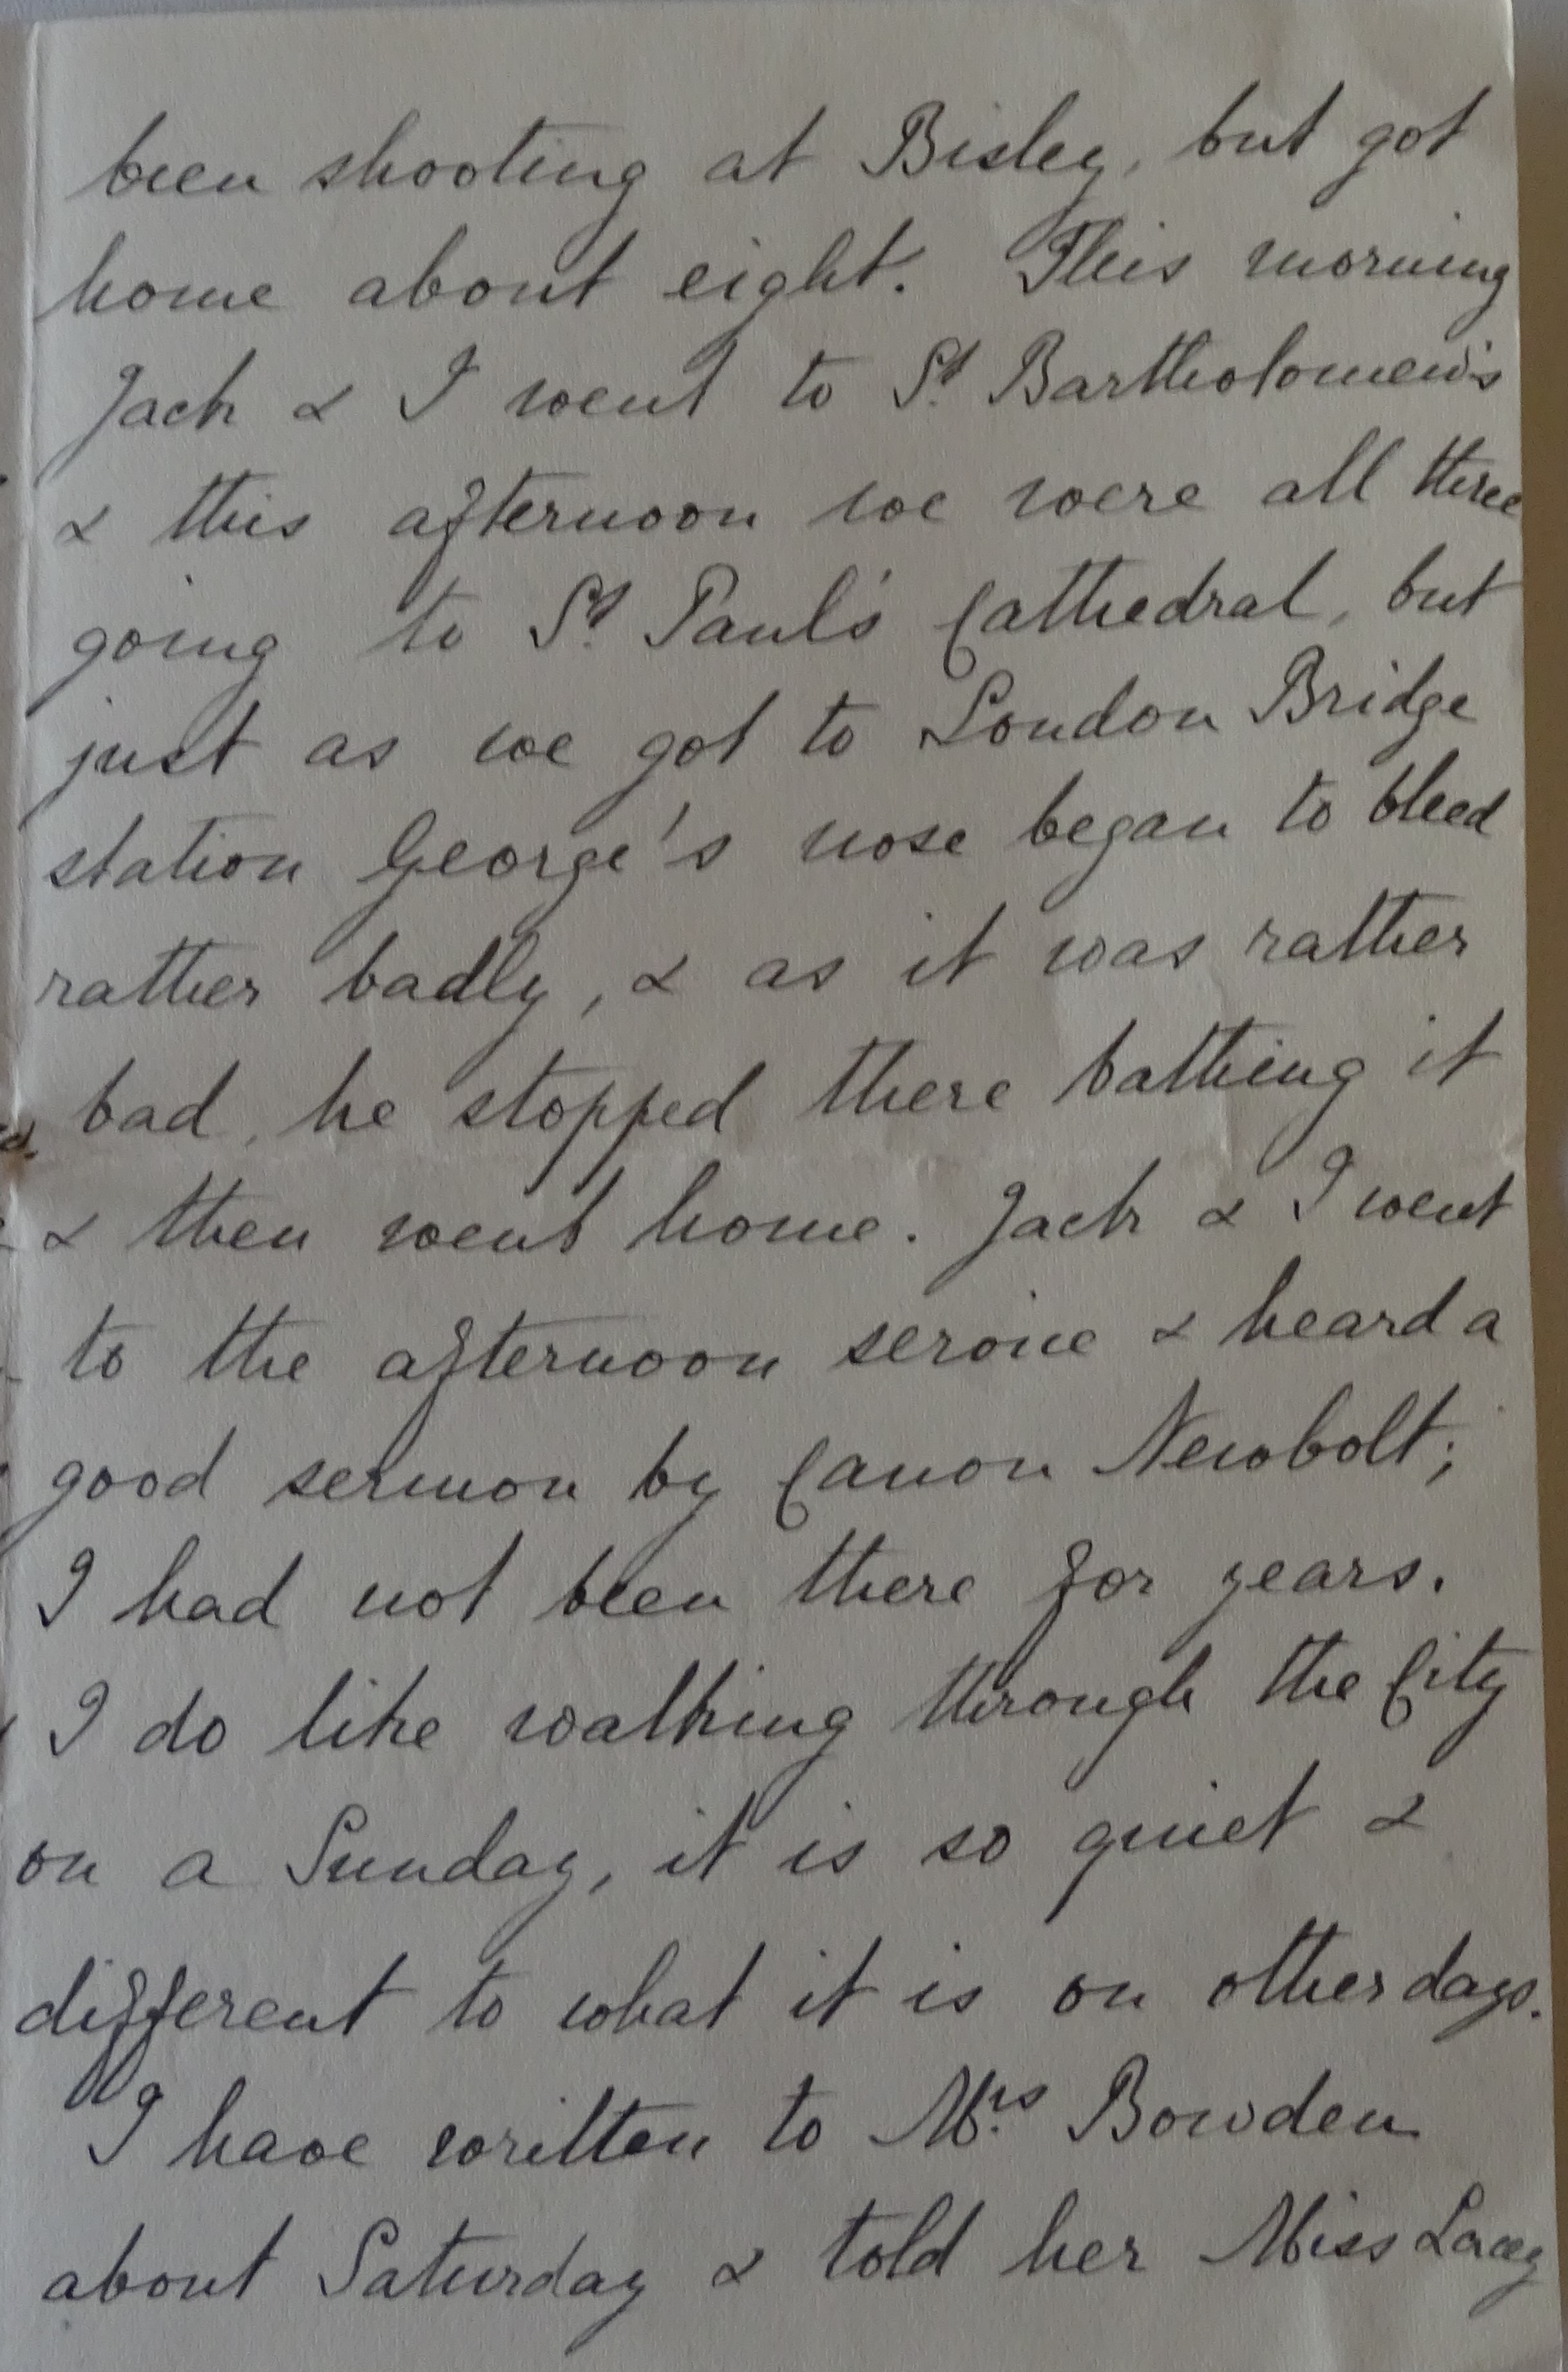 been shooting at Bisley, but got
home about eight. This morning
Jack & I went to St. Bartholomew's
& this afternoon we were all three
going to St. Paul's Cathedral, but
just as we got to London Bridge
station George's nose began to bleed
rather badly, & as it was rather
bad, he stopped there bathing it
& then went home. Jack & I went
to the afternoon service & heard a
good sermon by Canon Newbolt;
I had not been there for years.
I do like walking through the City
on a Sunday, it is so quiet &
different to what it is on other days.
I have written to Mrs. Bowden
about Saturday & told her Miss Lacey